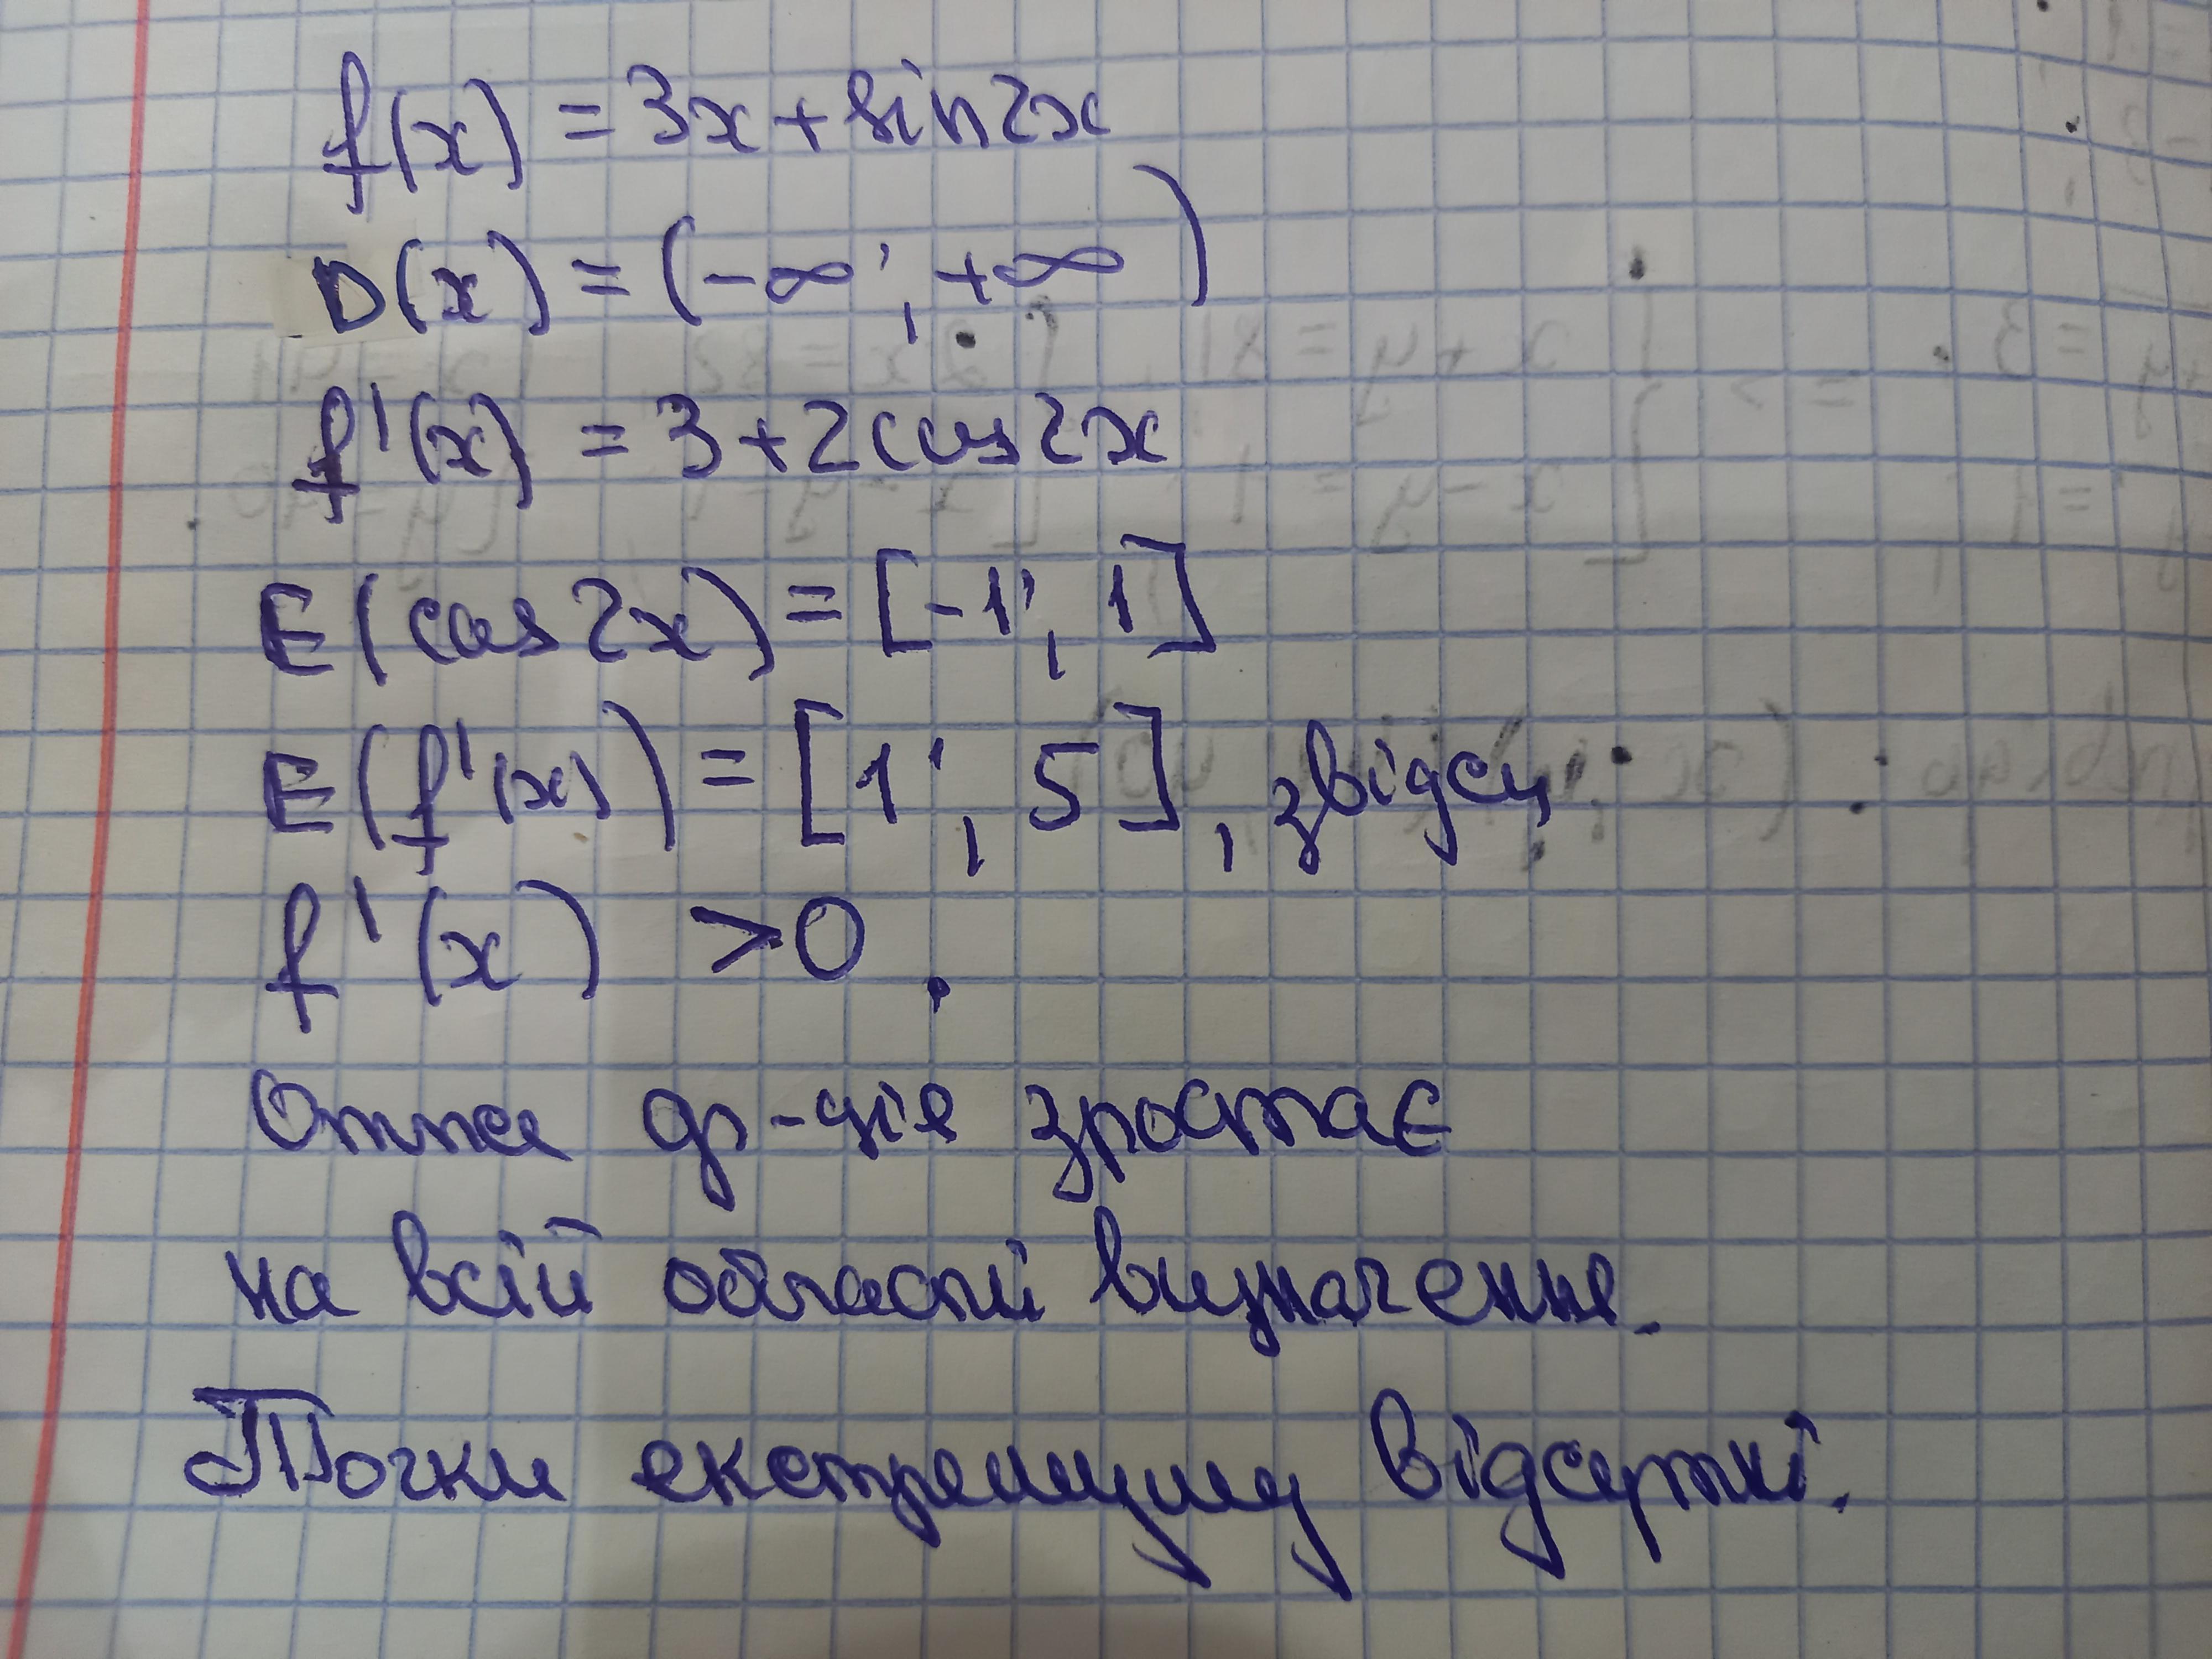 f(x) = 3x + sin2x
D(x) = (-∞; +∞)
f'(x) = 3 + 2cos2x
E(cos2x) = [-1; 1]
E(f'(x)) = [1; 5], звідси
f'(x) > 0.
Отже ф-ція зростає
на всій області визначення.
Точки екстремуму відсутні.